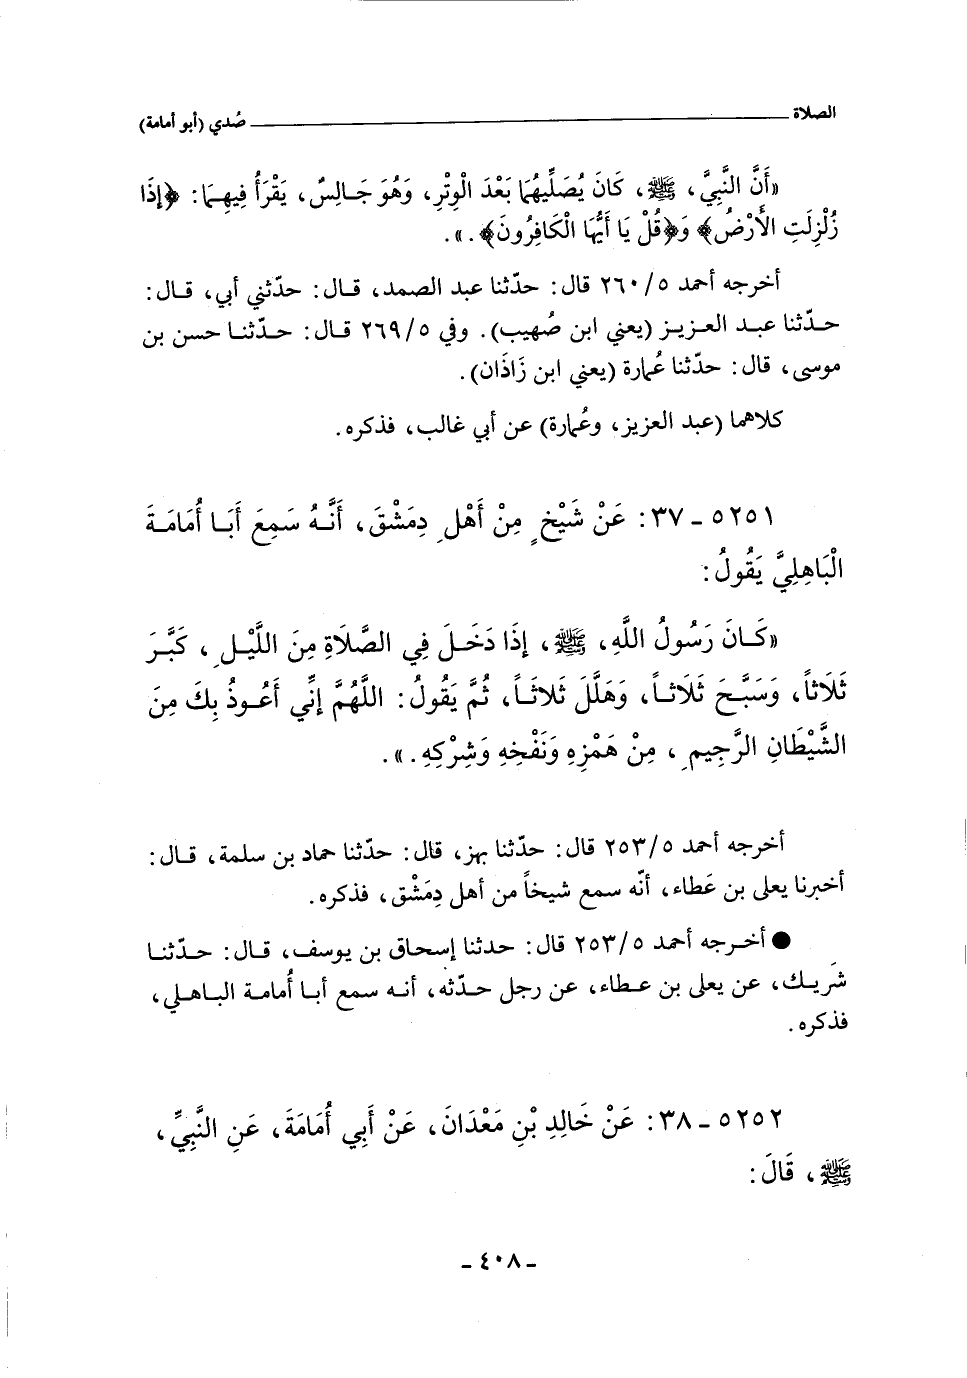 الصلاة ــــــــــــــــــــــــــــــــ صُدي (أبو أمامة)
«أَنَّ النَّبِيَّ، ﷺ، كَانَ يُصَلِّيهُمَا بَعْدَ الْوِتْرِ، وَهُوَ جَالِسٌ، يَقْرَأُ فِيهِمَا: ﴿إِذَا
زُلْزِلَتِ الْأَرْضُ﴾ وَ﴿قُلْ يَا أَيُّهَا الْكَافِرُونَ﴾.».
أخرجه أحمد ٥/٢٦٠ قال: حدّثنا عبد الصمد، قال: حدّثني أبي، قال:
حدّثنا عبد العزيز (يعني ابن صُهيب). وفي ٥/٢٦٩ قال: حدّثنا حسن بن
موسى، قال: حدّثنا عُمارة (يعني ابن زَاذَان).
كلاهما (عبد العزيز، وعُمارة) عن أبي غالب، فذكره.
٥٢٥١ ـ ٣٧: عَنْ شَيْخٍ مِنْ أَهْلِ دِمَشْقَ، أَنَّهُ سَمِعَ أَبَا أُمَامَةَ
الْبَاهِلِيَّ يَقُولُ:
«كَانَ رَسُولُ اللَّهِ، ﷺ، إِذَا دَخَلَ فِي الصَّلَاةِ مِنَ اللَّيْلِ، كَبَّرَ
ثَلَاثاً، وَسَبَّحَ ثَلَاثاً، وَهَلَّلَ ثَلاثَاً، ثُمَّ يَقُولُ: اللَّهُمَّ إِنِّي أَعُوذُ بِكَ مِنَ
الشَّيْطَانِ الرَّجِيمِ، مِنْ هَمْزِهِ وَنَفْخِهِ وَشِرْكِهِ.».
أخرجه أحمد ٥/٢٥٣ قال: حدّثنا بهز، قال: حدّثنا حماد بن سلمة، قال:
أخبرنا يعلى بن عَطاء، أنّه سمع شيخاً من أهل دِمَشْق، فذكره.
● أخرجه أحمد ٥/٢٥٣ قال: حدثنا إسحاق بن يوسف، قال: حدّثنا
شَريك، عن يعلى بن عطاء، عن رجل حدّثه، أنه سمع أبا أُمامة الباهلي،
فذكره.
٥٢٥٢ ـ ٣٨: عَنْ خَالِدِ بْنِ مَعْدَانَ، عَنْ أَبِي أُمَامَةَ، عَنِ النَّبِيِّ،
ﷺ، قَالَ:
ـ ٤٠٨ ـ